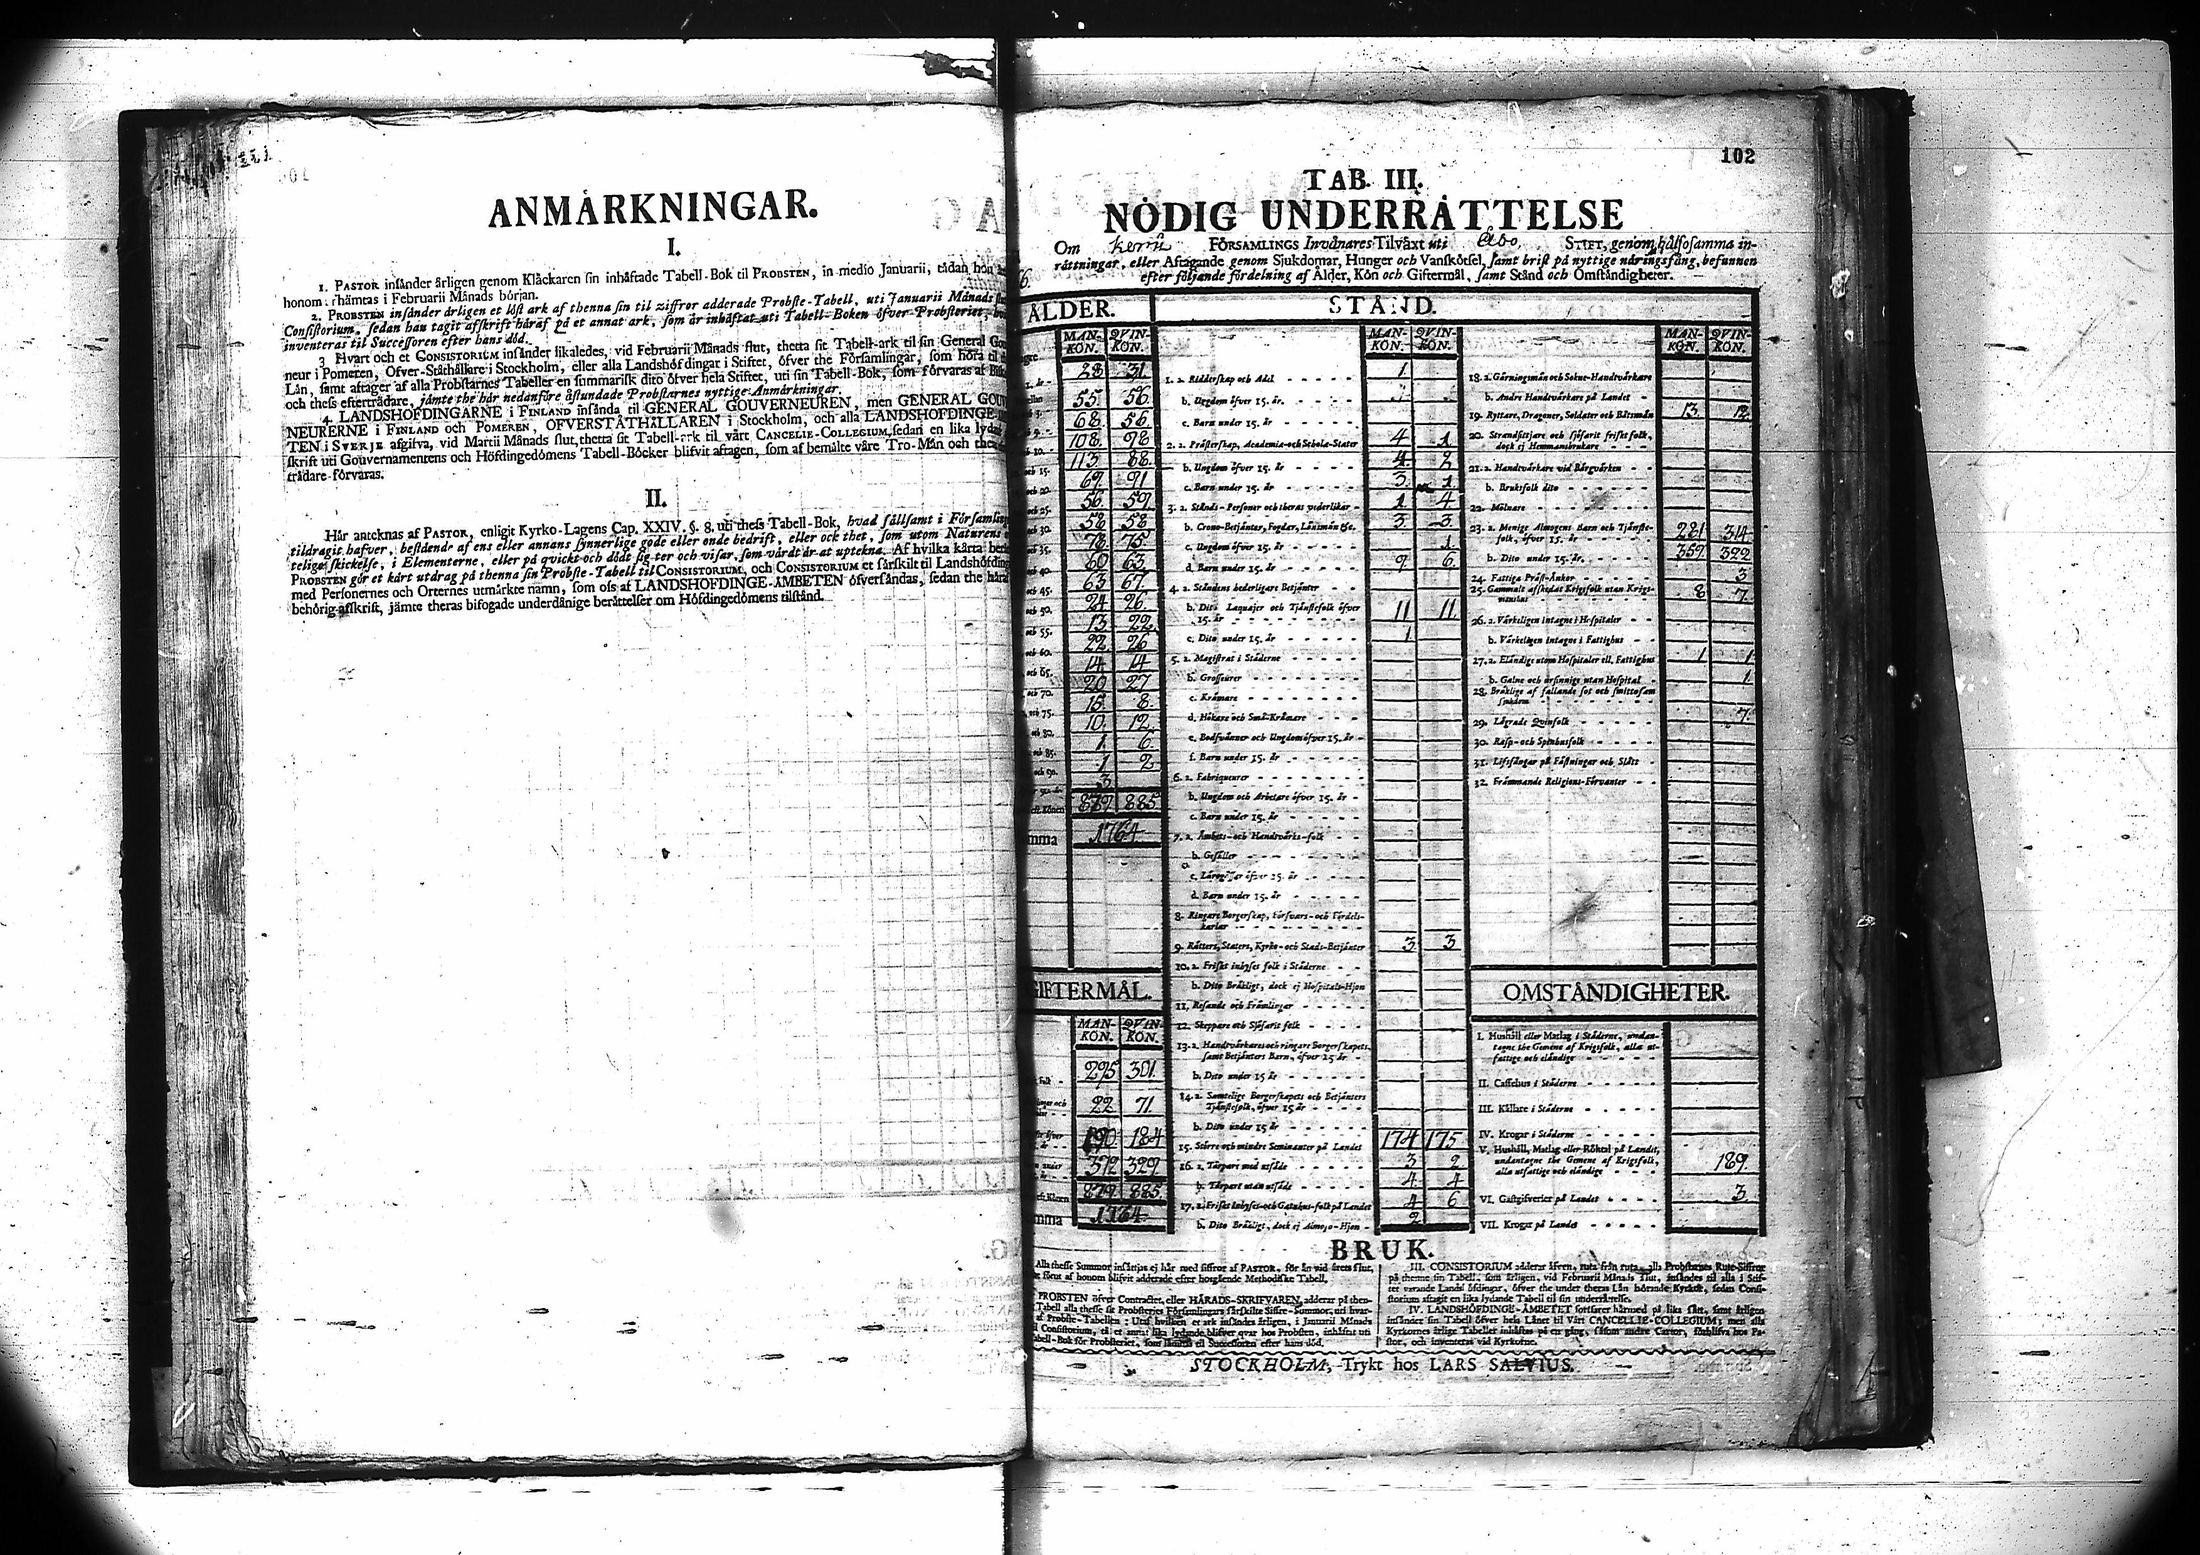 ANMÅRKNINGAR.
I.
1. PASTOR insånder årligen genom Klåckaren sin inhåftade Tabell-Bok til PROBSTEN, in medio Januarii, tådan hon
honom: håmtas i Februarii Månads början.
2. PROBSTEN insånder årligen et löst ark af thenna sin til ziffror adderade Probste-Tabell, uti Januarii Månads
Consistorium, sedan han tagit afskrift håraf på et annat ark, som år inhåftat uti Tabell-Boken öfver Probsteriet,
inventeras til Successoren efter hans död.
3. Hvart och et CONSISTORIUM insånder likaledes, vid Februarii Månads slut, thetta sit Tabell-ark til sin General
neur i Pomeren, Ofver-Ståthållare i Stockholm, eller alla Landshöfdingar i Stiftet, öfver the Församlingar, som höra til
Lån, samt aftager af alla Probstarnes Tabeller en summarisk dito öfver hela Stiftet, uti sin Tabell-Bok, som förvaras af
och thess eftertrådare, jåmte the hår nedanföre åstundade Probstarnes nyttige Anmårkningar.
4. LANDSHÖFDINGARNE i FINLAND insånda til GENERAL GOUVERNEUREN, men GENERAL
NEURERNE i FINLAND och POMEREN, OFVERSTÅTHÅLLAREN i Stockholm, och alla LANDSHÖFDINGE
TEN i SVERJE afgifva, vid Martii Månads slut, thetta sit Tabell-ark til vårt CANCELIE-COLLEGIUM, sedan en lika
skrift uti Gouvernamentens och Höfdingedömens Tabell-Böcker blifvit aftagen, som af bemålte våre Tro-Mån och
trådare förvaras.
II.
Hår anteknas af PASTOR, enligit Kyrko-Lagens Cap. XXIV. §. 8. uti thess Tabell-Bok, hvad sållsamt i
tildragit hafver, bestående af ens eller annans synnerlige gode eller onde bedrift, eller ock thet, som utom Naturens
telige skickelse, i Elementerne, eller på qvickt och dödt sig ter och visar, som vårdt år at uptekna. Af hvilka kårta
PROBSTEN gör et kårt utdrag på thenna sin Probste-Tabell til CONSISTORIUM, och CONSISTORIUM et sårskilt til
med Personernes och Orternes utmårkte namn, som ofs af LANDSHÖFDINGE-ÅMBETEN öfversåndas, sedan the
behörig afskrift, jåmte theras bifogade underdånige beråttelser om Höfdingedömens tilstånd.
102
TAB. III.
NÖDIG UNDERRÅTTELSE
Om Kemi FÖRSAMLINGS Invånares Tilvåxt uti Åbo STIFT, genom hålsosamma in-
råttningar, eller Aftagande genom Sjukdomar, Hunger och Vanskötsel, samt brist på nyttige nåringsfång, befunnen
efter följande fördelning af Ålder, Kön och Giftermål, samt Stånd och Omståndigheter.
ÅLDER.
MAN-KÖN. QVIN-KÖN.
28 31
55 56
68 56
108 98
113 88
69 91
56 59
58 58
78 75
60 63
63 67
24 26
13 22
22 26
14 14
20 27
15 8
10 12
1 6
1 2
3
879 885
1764
GIFTERMÅL.
MAN-KÖN. QVIN-KÖN.
295 301
22 71
190 184
372 329
879 885
1764
STÅND.
MAN-KÖN. QVIN-KÖN.
1. a. Ridderskap och Adel 1
b. Ungdom öfver 15. år.
c. Barn under 15. år
2. a. Pråsterskap, Academiæ-och Scholæ-Stater 4 1
b. Ungdom öfver 15. år 4 2
c. Barn under 15. år 3 1
3. a. Stånds-Personer och theras vederlikar 1 4
b. Crono-Betjånter, Fogdar, Lånsmån &c. 3 3
c. Ungdom öfver 15. år 1
d. Barn under 15. år 9 6
4. a. Ståndens hederligare Betjånter
b. Dito Laquajer och Tjånstefolk öfver
15. år 11 11
c. Dito under 15. år 1
5. a. Magistrat i Ståderne
b. Grosseurer
c. Kråmare
d. Hökare och Små-Kråmare
e. Bodsvånner och Ungdom öfver 15. år
f. Barn under 15. år
6. a. Fabriqueurer
b. Ungdom och Arbetare öfver 15. år
c. Barn under 15. år
7. a. Åmbets-och Handtvårks-folk
b. Gesåller
c. Lårogåssar öfver 15. år
d. Barn under 15. år
8. Ringare Borgerskap, Försvars-och Fördels-
karlar
9. Råttens, Staters, Kyrko-och Stads-Betjånter 3 3
10. a. Friskt inhyses folk i Ståderne
b. Dito Bråkligt, dock ej Hospitals-Hjon
11. Resande och Fråmlingar
12. Skeppare och Sjöfarit folk
13. a. Handtvårkares och ringare Borgerskapets,
samt Betjånters Barn, öfver 15 år
b. Dito under 15 år
14. a. Samtelige Borgerskapets och Betjånters
Tjånstefolk, öfver 15 år
b. Dito under 15 år
15. Större och mindre Hemmanter på Landet 174 175
16. a. Torpare med utsåde 3 2
b. Torpare utan utsåde 4 4
17. a. Friskt Inhyses-och Gatuhus-folk på Landet 4 6
b. Dito Bråkligt, dock ej Almoso-Hjon 2
MAN-KÖN. QVIN-KÖN.
18. a. Gårningsmån och Sokne-Handtvårkare
b. Andre Handtvårkare på Landet
19. Ryttare, Dragoner, Soldater och Båtsmån 13 12
20. Strandsittjare och sjöfarit friskt folk,
dock ej Hemmansbrukare
21. a. Handtvårkare vid Bårgvårken
b. Bruksfolk dito
22. Mölnare
23. a. Menige Almogens Barn och Tjånste-
folk, öfver 15. år 281 314
b. Dito under 15. år 359 322
24. Fattiga Pråst-Ånkor 3
25. Gammalt afskedat Krigsfolk utan Krigs-
manshus 8 7
26. a. Vårkeligen intagne i Hospitaler
b. Vårkeligen intagne i Fattighus
27. a. Elåndige utom Hospitaler ell. Fattighus 1 1
b. Galne och ursinnige utan Hospital 1
28. Bråklige af fallande sot och smittosam
sjukdom
29. Lågrade Qvinfolk 7
30. Rasp-och Spinhusfolk
31. Lifsfångar på Fåstningar och Slått
32. Fråmmande Religions-Förvanter
OMSTÅNDIGHETER.
I. Hushåll eller Matlag i Ståderne, undan-
tagne the Gemene af Krigsfolk, alla ut-
fattige och elåndige
II. Caffehus i Ståderne
III. Kållare i Ståderne
IV. Krogar i Ståderne
V. Hushåll, Matlag eller Röktal på Landet,
undantagne the Gemene af Krigsfolk,
alla utfattige och elåndige 189
VI. Gåstgifverier på Landet 3
VII. Krogar på Landet
BRUK.
Alla thesse Summor insåttjas ej hår med siffror af PASTOR, för ån vid årets slut,
förut af honom blifvit adderade efter hosgående Methodiske Tabell.
PROBSTEN öfver Contractet, eller HÅRADS-SKRIFVAREN, adderar på then-
Tabell alla thesse sit Probsteries Församlingars sårskilte Siffre-Summor, uti hvar-
af Probste-Tabellen: Utaf hvilken et ark insåndes årligen, i Januarii Månads
Consistorium, til et annat lika lydande blifver qvar hos Probsten, inhåftat uti
Tabell-Bok för Probsteriet, som låmnas til Successoren efter hans död.
III. CONSISTORIUM adderar åfven, ruta från ruta, alla Probstarnes Rute-Siffror
på thenne sin Tabell, som årligen, vid Februarii Månads slut, insåndes til alla i Stif-
tet varande Landshöfdingar, öfver the under theras Lån hörande Kyrkor, sedan Consi-
storium aftagit en lika lydande Tabell til sin underråttelse.
IV. LANDSHÖFDINGE-ÅMBETET fortfarer hårmed på lika sått, samt årligen
insånder sin Tabell öfver hela Lånet til Vårt CANCELLIE-COLLEGIUM; men alla
Kyrkornes årlige Tabeller inhåftas på en gång, såsom andre Cartor, förblifva hos Pa-
stor, och inventeras vid Kyrkorne.
STOCKHOLM, Trykt hos LARS SALVIUS.